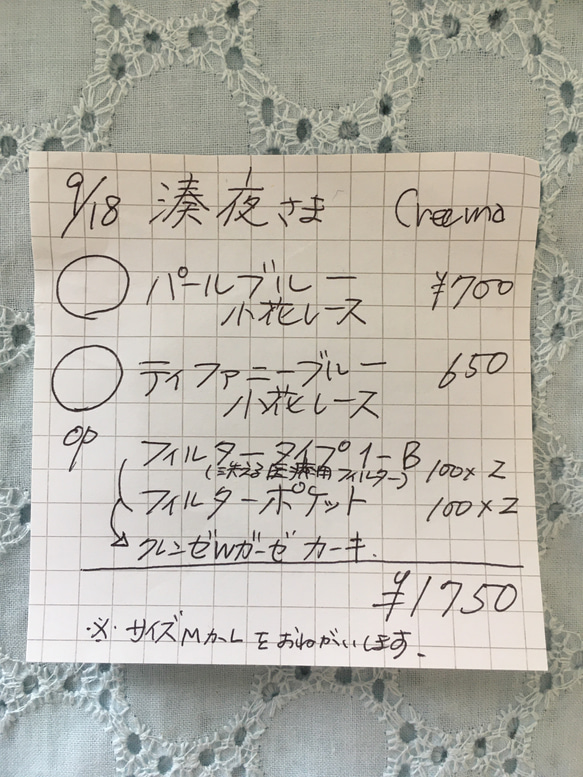 9/18 湊夜さま Creema
パールブルー ¥700
小花レース
ティファニーブルー 650
小花レース
op フィルタータイプ1-B 100×2
(洗える医療用フィルター)
フィルターポケット 100×2
クレンゼWガーゼ カーキ.
¥1750
※ サイズMカーLをおねがいします。